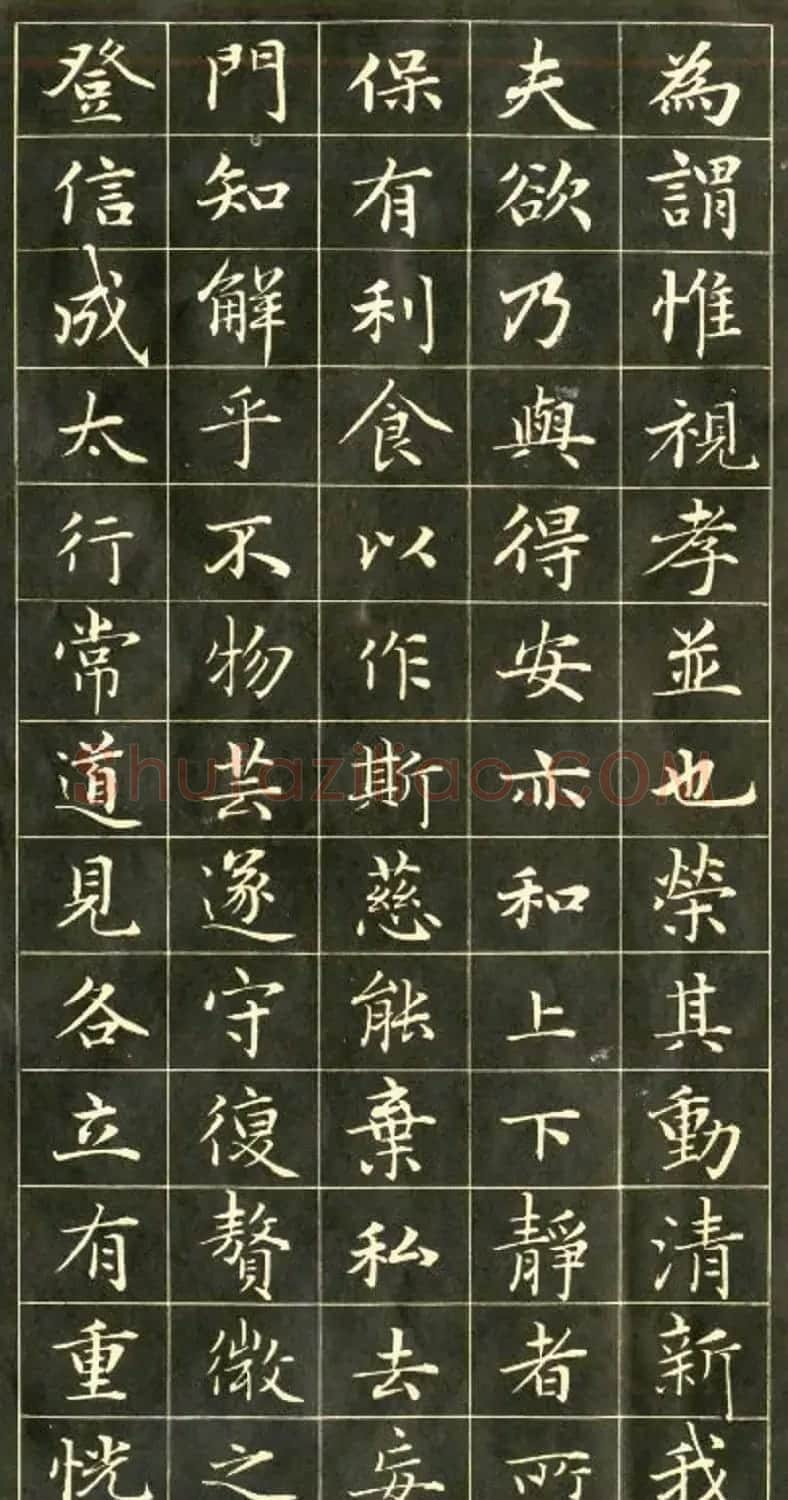 為謂惟視孝並也榮其動清新我
夫欲乃與得安亦和上下靜者所
保有利食以作斯慈能棄私去妄
門知解乎不物芸遂守復贅微之
登信成太行常道見各立有重恍
Shufaziliao.COM